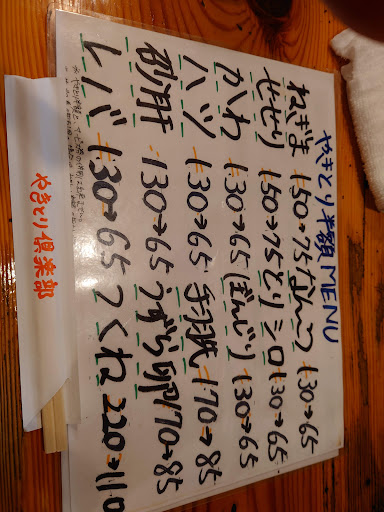 やきとり半額MENU
ねぎま 150→75 なんこつ 130→65
せせり 150→75 とりシロ 130→65
かわ 130→65 ぼんじり 130→65
ハツ 130→65 手羽 170→85
砂肝 130→65 うずら卵 170→85
レバ 130→65 つくね 220→110
やきとり倶楽部